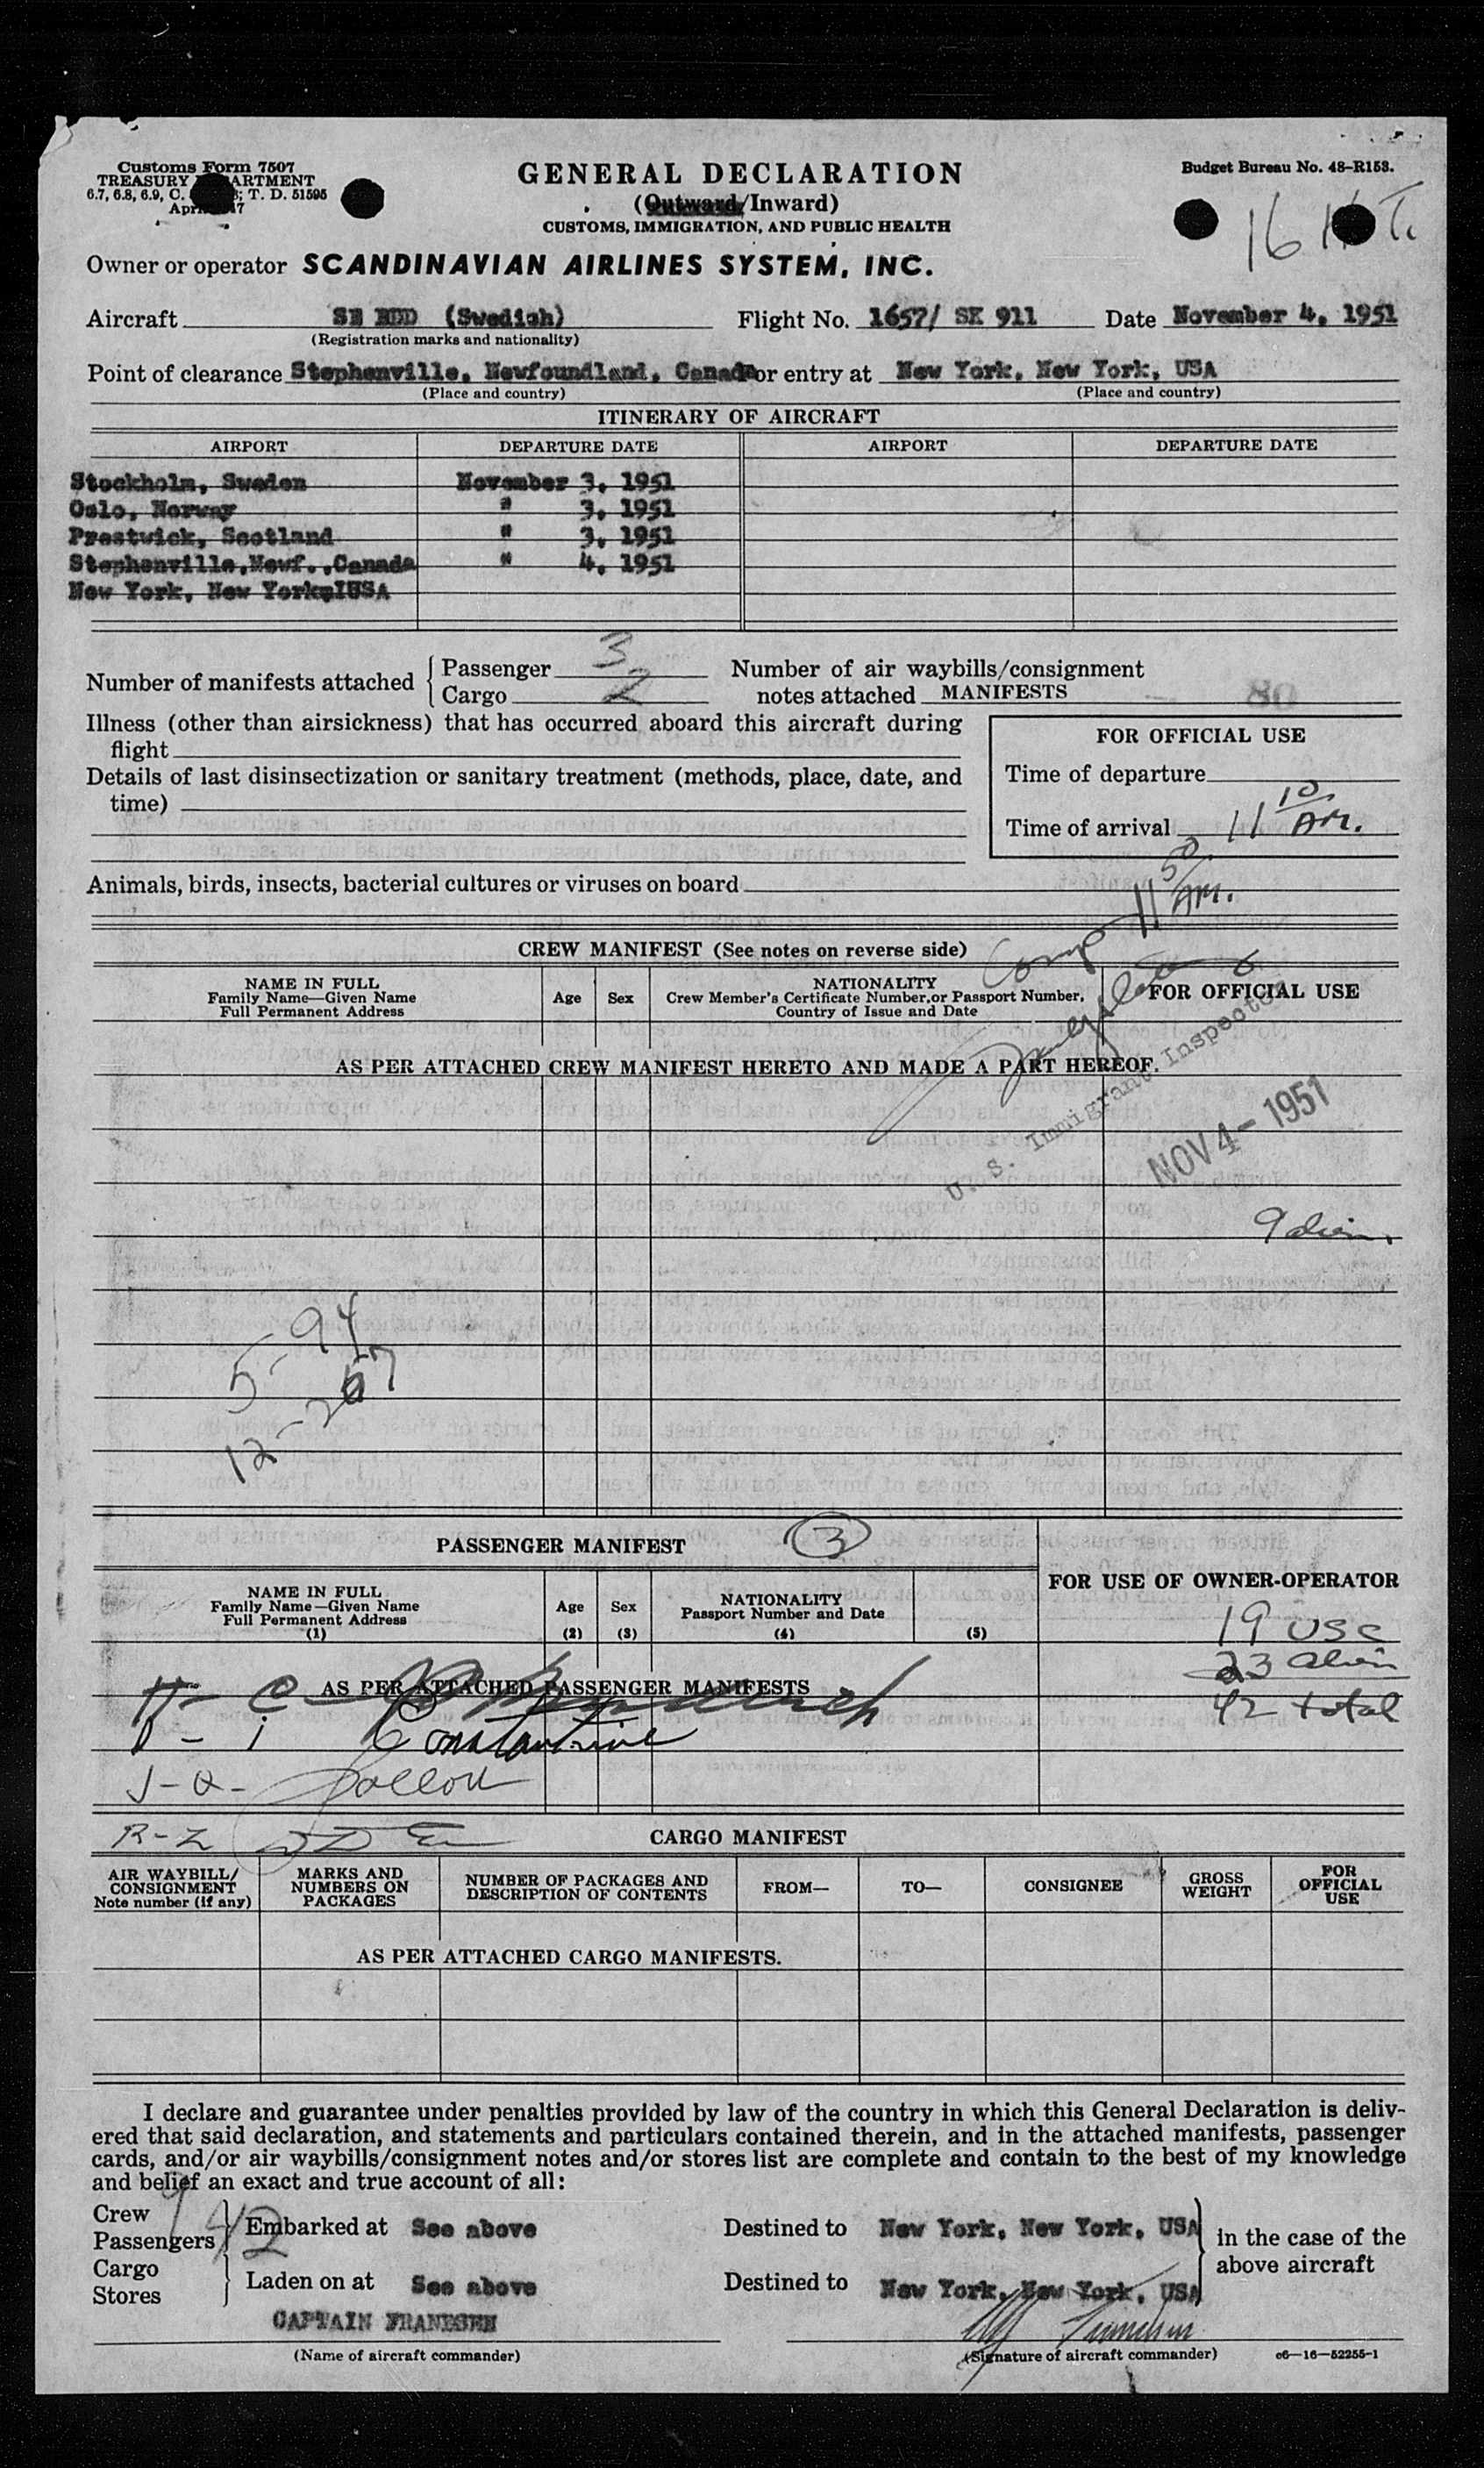 Customs Form 7507
TREASURY DEPARTMENT
6.7, 6.8, 6.9, C. ; T. D. 51595
GENERAL DECLARATION
(Outward/Inward)
CUSTOMS, IMMIGRATION, AND PUBLIC HEALTH
Budget Bureau No. 48-R153.
16
Owner or operator SCANDINAVIAN AIRLINES SYSTEM, INC.
Aircraft SE BDD (Swedish) Flight No. 1657/ SK 911 Date November 4, 1951
(Registration marks and nationality)
Point of clearance Stephenville, Newfoundland, Canada For entry at New York, New York, USA
(Place and country) (Place and country)
ITINERARY OF AIRCRAFT
AIRPORT DEPARTURE DATE AIRPORT DEPARTURE DATE
Stockholm, Sweden November 3, 1951
Oslo, Norway " 3, 1951
Prestwick, Scotland " 3, 1951
Stephenville, Newf., Canada " 4, 1951
New York, New York, USA
Number of manifests attached { Passenger 3 Number of air waybills/consignment
Cargo 2 notes attached MANIFESTS 80
Illness (other than airsickness) that has occurred aboard this aircraft during
flight
Details of last disinsectization or sanitary treatment (methods, place, date, and
time)
FOR OFFICIAL USE
Time of departure
Time of arrival 11 10 AM.
Animals, birds, insects, bacterial cultures or viruses on board
Comp 11 50 AM.
CREW MANIFEST (See notes on reverse side)
NAME IN FULL
Family Name—Given Name
Full Permanent Address
Age Sex
NATIONALITY
Crew Member's Certificate Number, or Passport Number,
Country of Issue and Date
FOR OFFICIAL USE
AS PER ATTACHED CREW MANIFEST HERETO AND MADE A PART HEREOF.
U. S. Immigrant Inspector
NOV 4 - 1951
9 alien
5 - 94
12 - 267
PASSENGER MANIFEST 3
FOR USE OF OWNER-OPERATOR
NAME IN FULL
Family Name—Given Name
Full Permanent Address
(1)
Age
(2)
Sex
(3)
NATIONALITY
Passport Number and Date
(4) (5)
19 USC
23 alien
42 total
AS PER ATTACHED PASSENGER MANIFESTS
D - i Constantine
J - Q -
R - Z
CARGO MANIFEST
AIR WAYBILL/
CONSIGNMENT
Note number (if any)
MARKS AND
NUMBERS ON
PACKAGES
NUMBER OF PACKAGES AND
DESCRIPTION OF CONTENTS
FROM— TO— CONSIGNEE
GROSS
WEIGHT
FOR
OFFICIAL
USE
AS PER ATTACHED CARGO MANIFESTS.
I declare and guarantee under penalties provided by law of the country in which this General Declaration is deliv-
ered that said declaration, and statements and particulars contained therein, and in the attached manifests, passenger
cards, and/or air waybills/consignment notes and/or stores list are complete and contain to the best of my knowledge
and belief an exact and true account of all:
Crew 9
Passengers 42 Embarked at See above Destined to New York, New York, USA
in the case of the
above aircraft
Cargo
Stores Laden on at See above Destined to New York, New York, USA
CAPTAIN FRANDSEN
(Name of aircraft commander) (Signature of aircraft commander) c6—16—52255-1